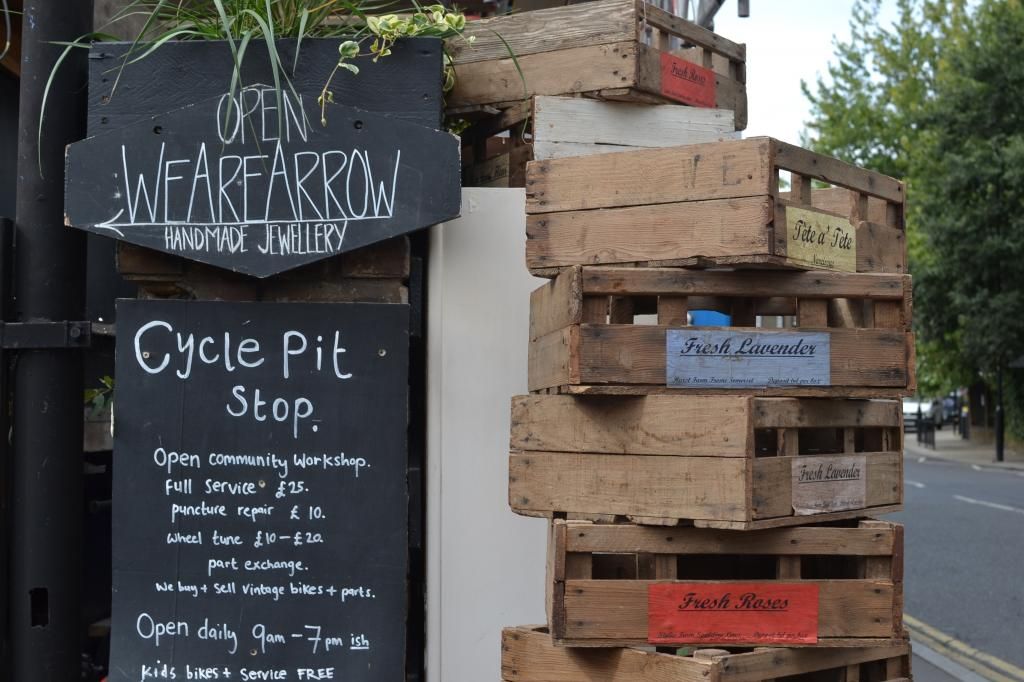 OPEN
WEAREARROW
HANDMADE JEWELLERY
Cycle Pit
Stop.
Open community workshop.
full Service £25.
puncture repair £ 10.
wheel tune £10-£20
part exchange.
we buy + sell vintage bikes + parts.
Open daily 9am-7pm ish
Kids bikes + service FREE
Fresh Roses
Tete a' Tete
Fresh Lavender
Fresh Lavender
Fresh Roses